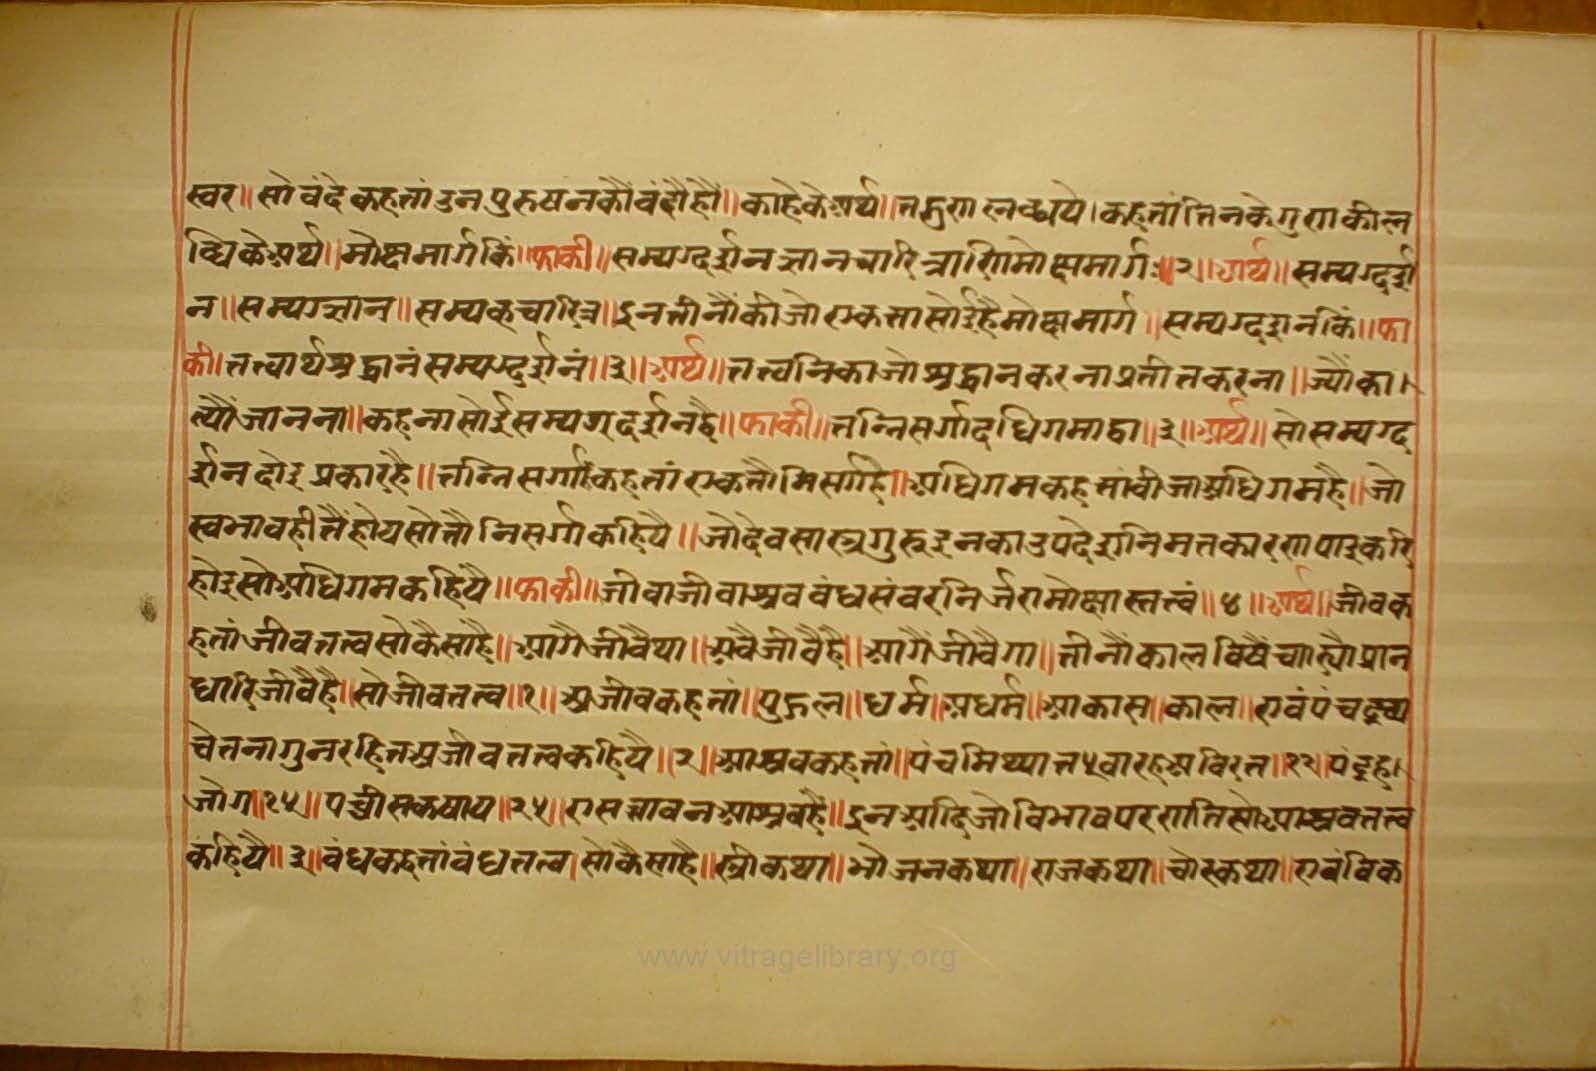 स्वर॥ सो वंदे कहतां उन पुरुषनकौं वंदौहौं॥ काहेके अर्थ॥ तद्गुण लब्धये। कहतां तिनके गुणकील
ब्धिके अर्थ॥ मोक्षमार्ग किं॥ फाकी॥ सम्यग्दर्शनज्ञानचारित्राणिमोक्षमार्गः॥२॥ अर्थ॥ सम्यग्दर्श
न॥ सम्यग्ज्ञान॥ सम्यकचारित्र॥ इन तीनौंकी जो एकता सोई है मोक्षमार्ग॥ सम्यग्दर्शन किं॥ फा
की॥ तत्त्वार्थश्रद्धानं सम्यग्दर्शनं॥३॥ अर्थ॥ तत्त्वनिका जो श्रद्धान करना प्रतीत करना॥ ज्यौं का।
त्यौं जानना॥ कहना सोई सम्यग्दर्शन है॥ फाकी॥ तन्निसर्गादधिगमाद्वा॥३॥ अर्थ॥ सो सम्यग्द
र्शन दोइ प्रकार है॥ तन्निसर्गा कहतां एक तौ निसर्ग है॥ अधिगम कहतां वीजा अधिगम है॥ जो
स्वभावही तैं होय सो तौ निसर्ग कहियै॥ जो देव सास्त्र गुरू इनका उपदेश निमत्त कारण पाइ करि
होइ सो अधिगम कहियै॥ फाकी॥ जीवाजीवाश्रववंधसंवरनिर्जरामोक्षास्तत्त्वं॥४॥ अर्थ॥ जीव क
हतां जीवतत्त्व सो कैसा है॥ आगै जीवै था॥ अवै जीवै है॥ आगैं जीवैगा॥ तीनौं काल विषैं च्यारौं प्रान
धारि जीवै है॥ सो जीवतत्त्व॥१॥ अजीव कहतां॥ पुद्गल॥ धर्म॥ अधर्म॥ आकास॥ काल॥ एवं पंचद्रव्य
चेतनागुन रहित अजीवतत्त्व कहियै॥२॥ आश्रव कहतां॥ पंच मिथ्यात्त५ वारह अविरत॥१२॥ पंद्रह।
जोग॥१५॥ पच्चीस कषाय॥२५॥ ए सत्तावन आश्रव है॥ इन आदि जो विभाव परणति सो आश्रवतत्त्व
कहियै॥३॥ वंध कहतां वंधतत्त्व। सो कैसा है॥ स्त्रीकथा॥ भोजनकथा॥ राजकथा॥ चोरकथा॥ एवं विक
www.vitragelibrary.org